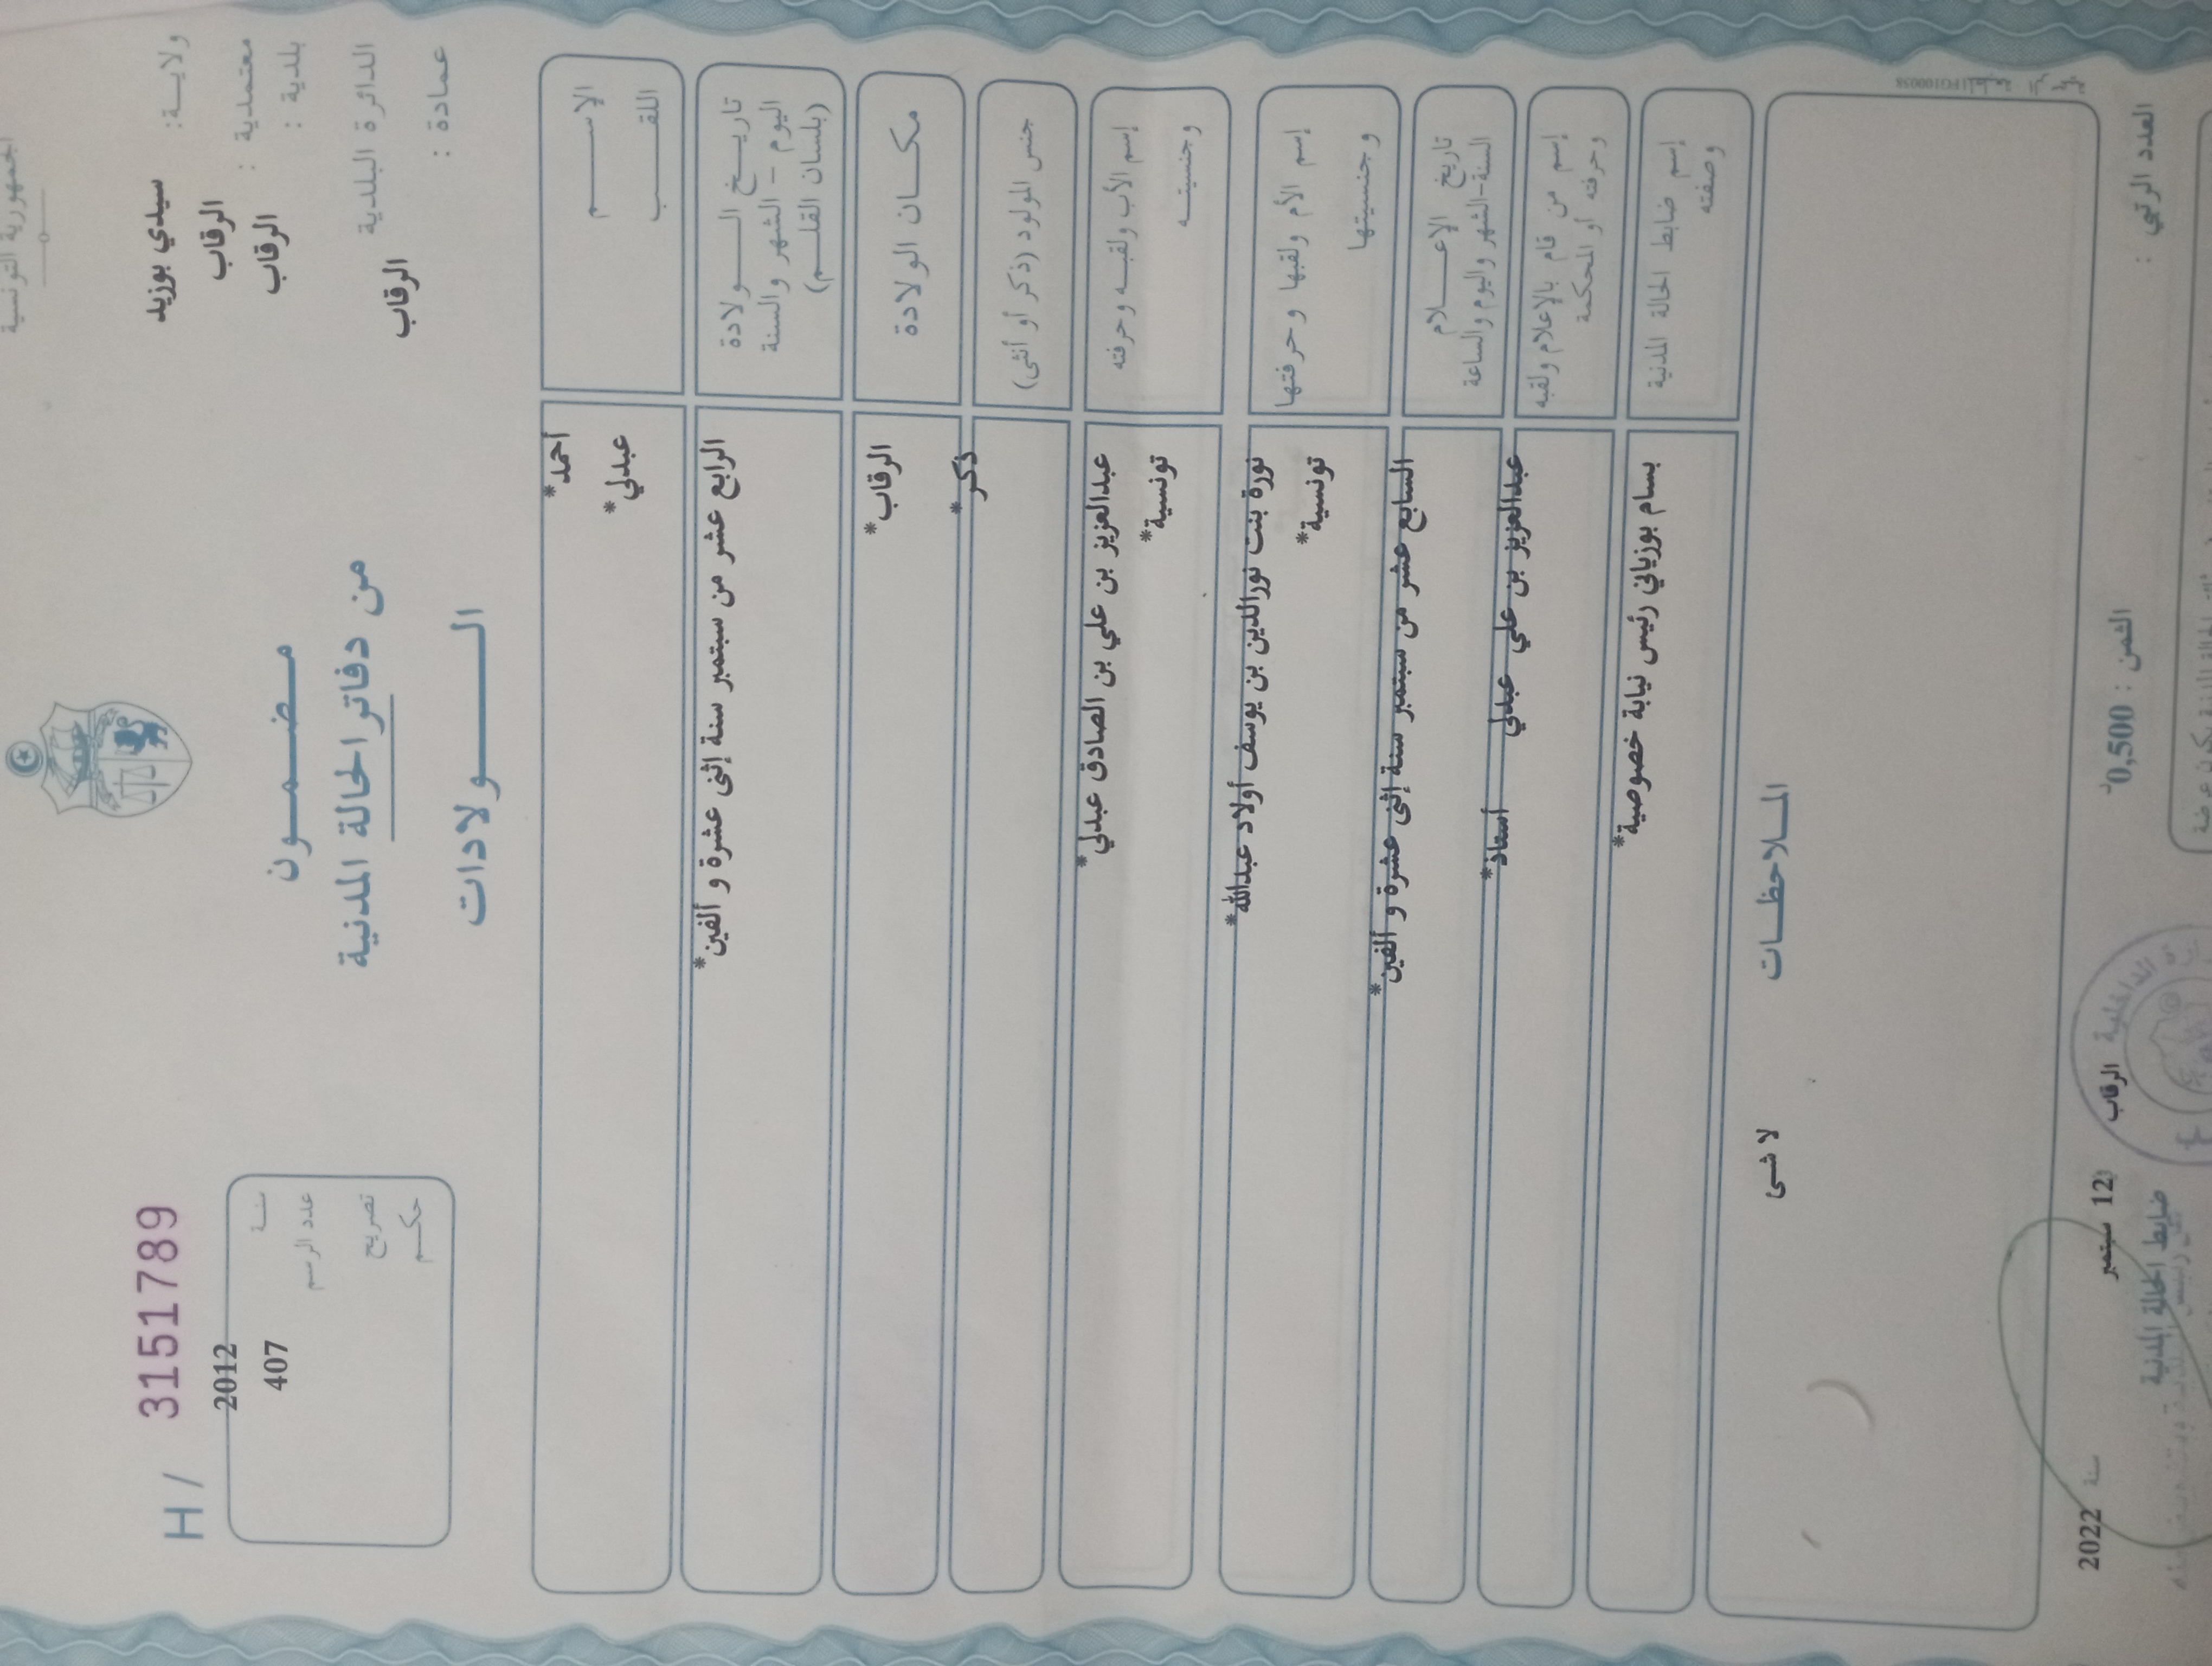 الجمهورية التونسية
ولايـــة: سيدي بوزيد
معتمدية : الرقاب
بلدية : الرقاب
الدائرة البلدية
الرقاب
عمادة :
H / 3151789
2012
سنـــة
407
عدد الرسم
تصريح
حكـــم
مـضـمـــون
من دفاتر الحالة المدنية
الـــــولادات
الإســـــم
أحمد*
اللقـــــب
عبدلي*
تاريـــخ الـــــولادة
اليوم - الشهر والسنة
(بلسان القلـــم)
الرابع عشر من سبتمبر سنة إثنى عشرة و ألفين*
مكـــان الولادة
الرقاب*
جنس المولود (ذكر أو أنثى)
ذكر*
إسم الأب ولقبـــه وحرفته
عبدالعزيز بن علي بن الصادق عبدلي*
وجنسيتـــه
تونسية*
إسم الأم ولقبها وحرفتها
نورة بنت نورالدين بن يوسف أولاد عبدالله*
وجنسيتها
تونسية*
تاريخ الإعـــلام
السنة-الشهر واليوم والساعة
السابع عشر من سبتمبر سنة إثنى عشرة و ألفين*
إسم من قام بالإعلام ولقبه
وحرفته أو المحكمة
عبدالعزيز بن علي عبدلي أستاذ*
إسم ضابط الحالة المدنية
وصفته
بسام بوزياني رئيس نيابة خصوصية*
المـــلاحظـــات
لا شى
العدد الرتبي :
الثمن : 0,500د
الرقاب 12 سبتمبر سنة 2022
ضابط الحالة المدنية